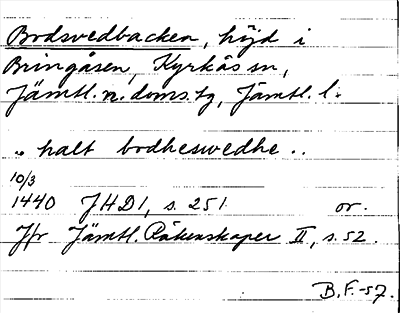 Bodsvedbacken, höjd i
Bringåsen, Kyrkås sn,
Jämtl. n. doms. tg, Jämtl. l.
.. halt bodheswedhe ..
10/3
1440 JHD I, s. 251. or.
Jfr Jämtl. Räkenskaper II, s. 52.
B. F. -57.